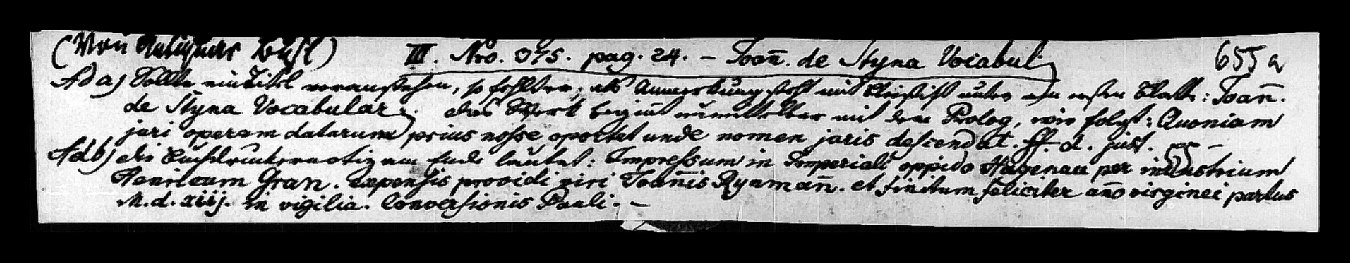 (Von Religiosis Bösl) III. Nro. 375. pag. 24. – Joañ. de Hyna Vocabul. 655a
Ad a) Sollte ein Titl voranstehen, so fehlt er; als Anmerkung steht mit Bleistift unter am ersten Blatte: Joañ.
de Hyna Vocabular; das Werk beginnt unmittelbar mit dem Prolog, wie folgt: Quoniam
juri operam daturum prius nosse oportet unde nomen juris descendat. ff. d. just. –
Ad b) die Buchdruckernotiz am Ende lautet: Impressum in Imperiali oppido Hagenau per industrium
Henricum Gran. expensis providi viri Joañis Rynmañ. et finitum feliciter año virginei partus
M.d.xiij. in vigilia. Conversionis Pauli. –